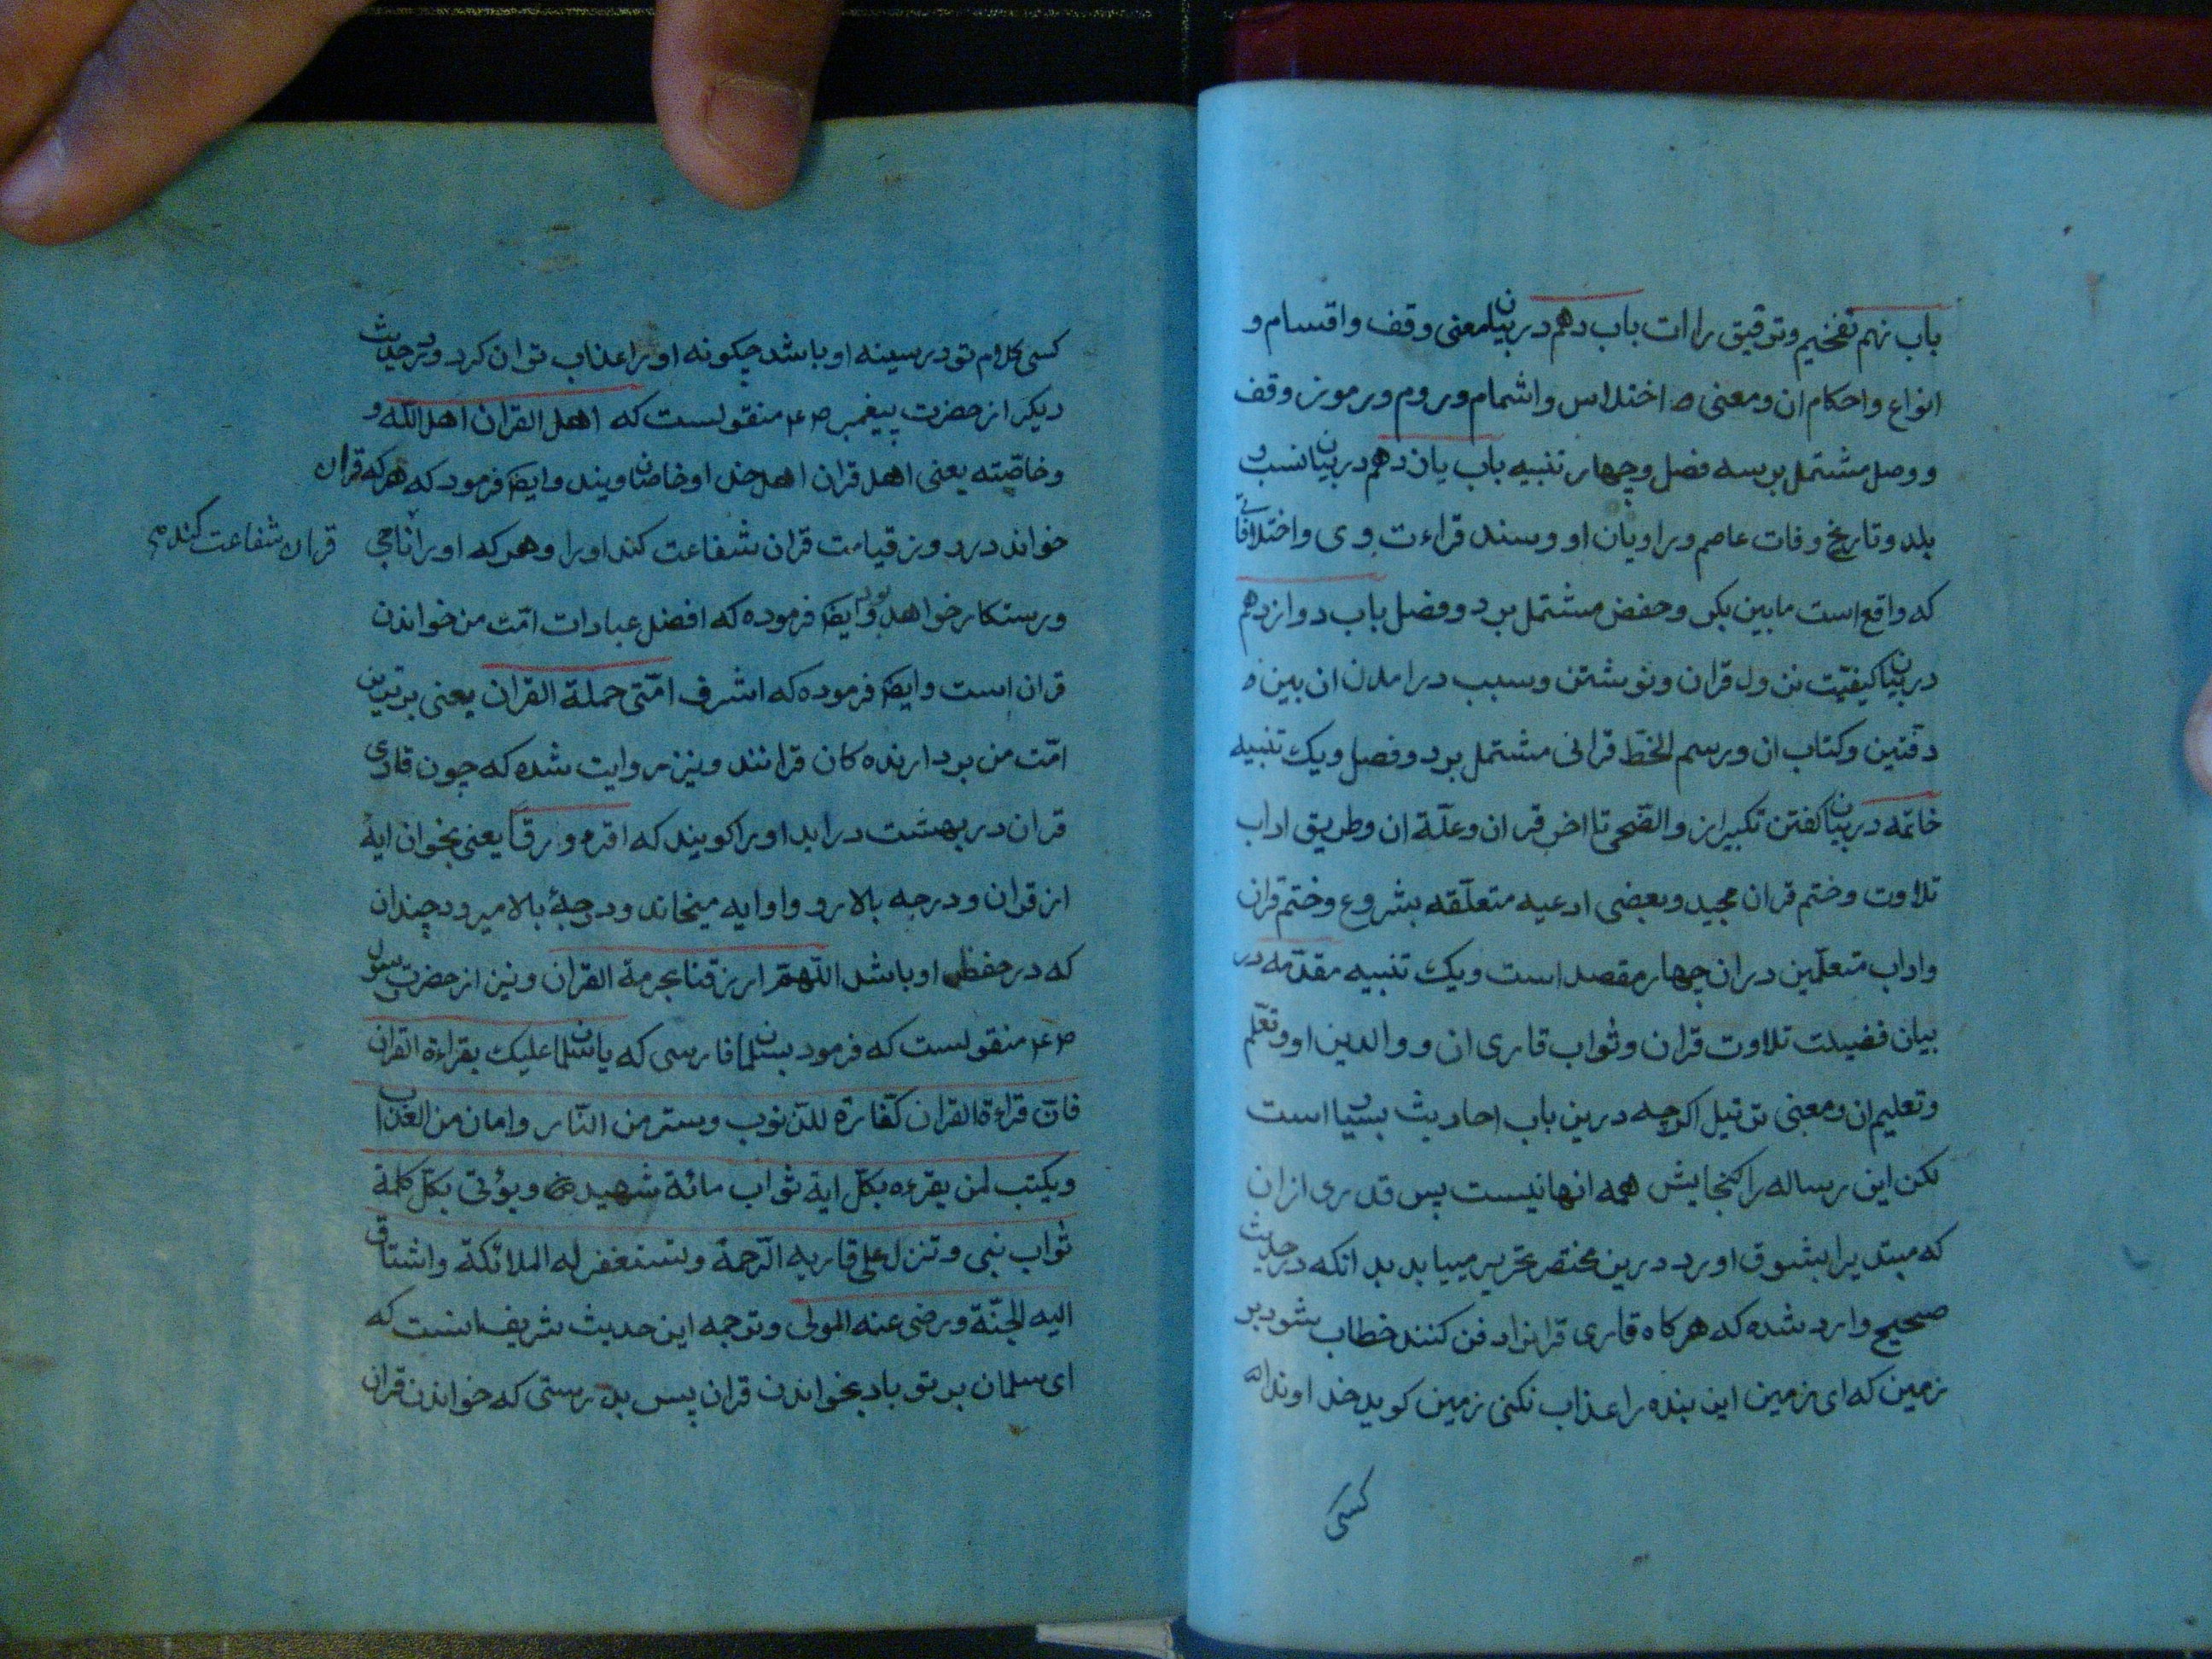 باب نهم تفخیم و توقیق راات باب دهم در بیان معنی وقف و اقسام و
انواع و احکام ان و معنی اختلاس و اشمام و روم و رموز وقف
و وصل مشتمل بر سه فصل و چهار تنبیه باب یازدهم در بیان نسب و
بلد و تاریخ وفات عاصم و راویان او و سند قراءت وی و اختلافاتی
که واقع است مابین بکر و حفص مشتمل بر دو فصل باب دوازدهم
در بیان کیفیّت نزول قران و نوشتن و سبب در امدن ان بین
دفتین و کتاب ان و رسم الخطّ قرانی مشتمل بر دو فصل و یک تنبیه
خاتمه در بیان کفتن تکبیر از والضّحی تا اخر قران و علّة ان و طریق اداب
تلاوت و ختم قران مجید و بعضی ادعیه متعلّقه بشروع و ختم قران
و اداب متعلّمین در ان چهار مقصد است و یک تنبیه مقدّمه در
بیان فضیلت تلاوت قران و ثواب قاری ان و والدین او و تعلّم
و تعلیم ان و معنی ترتیل اکرچه درین باب احادیث بسیار است
لکن این رساله را کنجایش همه انها نیست پس قدری از ان
که مبتدیرا بشوق اورد درین مختصر تحریر مییابد بدانکه در حدیث
صحیح وارد شده که هرکاه قاری قرانرا دفن کنند خطاب شود بر
زمین که ای زمین این بنده را عذاب نکنی زمین کوید خداوندا
کسی
کسی کلام تو در سینه او باشد چکونه او را عذاب توان کرد و در حدیث
دیکر از حضرت پیغمبر ص ع منقولست که اهل القران اهل الله و
و خاصّته یعنی اهل قران اهل خدا و خاصان ویند و ایضا فرمود که هر که قران
خواند در روز قیامت قران شفاعت کند او را و هر که او را ناجی
قران شفاعت کند
و رستکار خواهد بود و ایضا فرموده که افضل عبادات امّت من خواندن
قران است و ایضا فرموده که اشرف امّتی حملة القران یعنی برترین
امّت من بردارنده کان قرانند و نیز روایت شده که چون قاری
قران در بهشت دراید او را کویند که اقرء و ارقا یعنی بخوان ایهٔ
از قران و درجه بالا رو و او ایه میخاند و درجهٔ بالا میرود چندان
که در حفظ او باشد اللّهمّ ارزقنا بحرمة القران و نیز از حضرت رسول
ص ع منقولست که فرمود بسلمان فارسی که یا سلمان علیک بقراءة القران
فانّ قراءة القران کفّارة للذّنوب و ستر من النّار و امان من العذاب
و یکتب لمن یقرءه بکلّ ایة ثواب مائة شهید و یؤتی بکلّ کلمة
ثواب نبی و تنزل علی قاریه الرّحمة و تستغفر له الملائکة و اشتاق
الیه الجنّة و رضی عنه المولی و ترجمه این حدیث شریف انست که
ای سلمان بر تو باد بخواندن قران پس بدرستی که خواندن قران